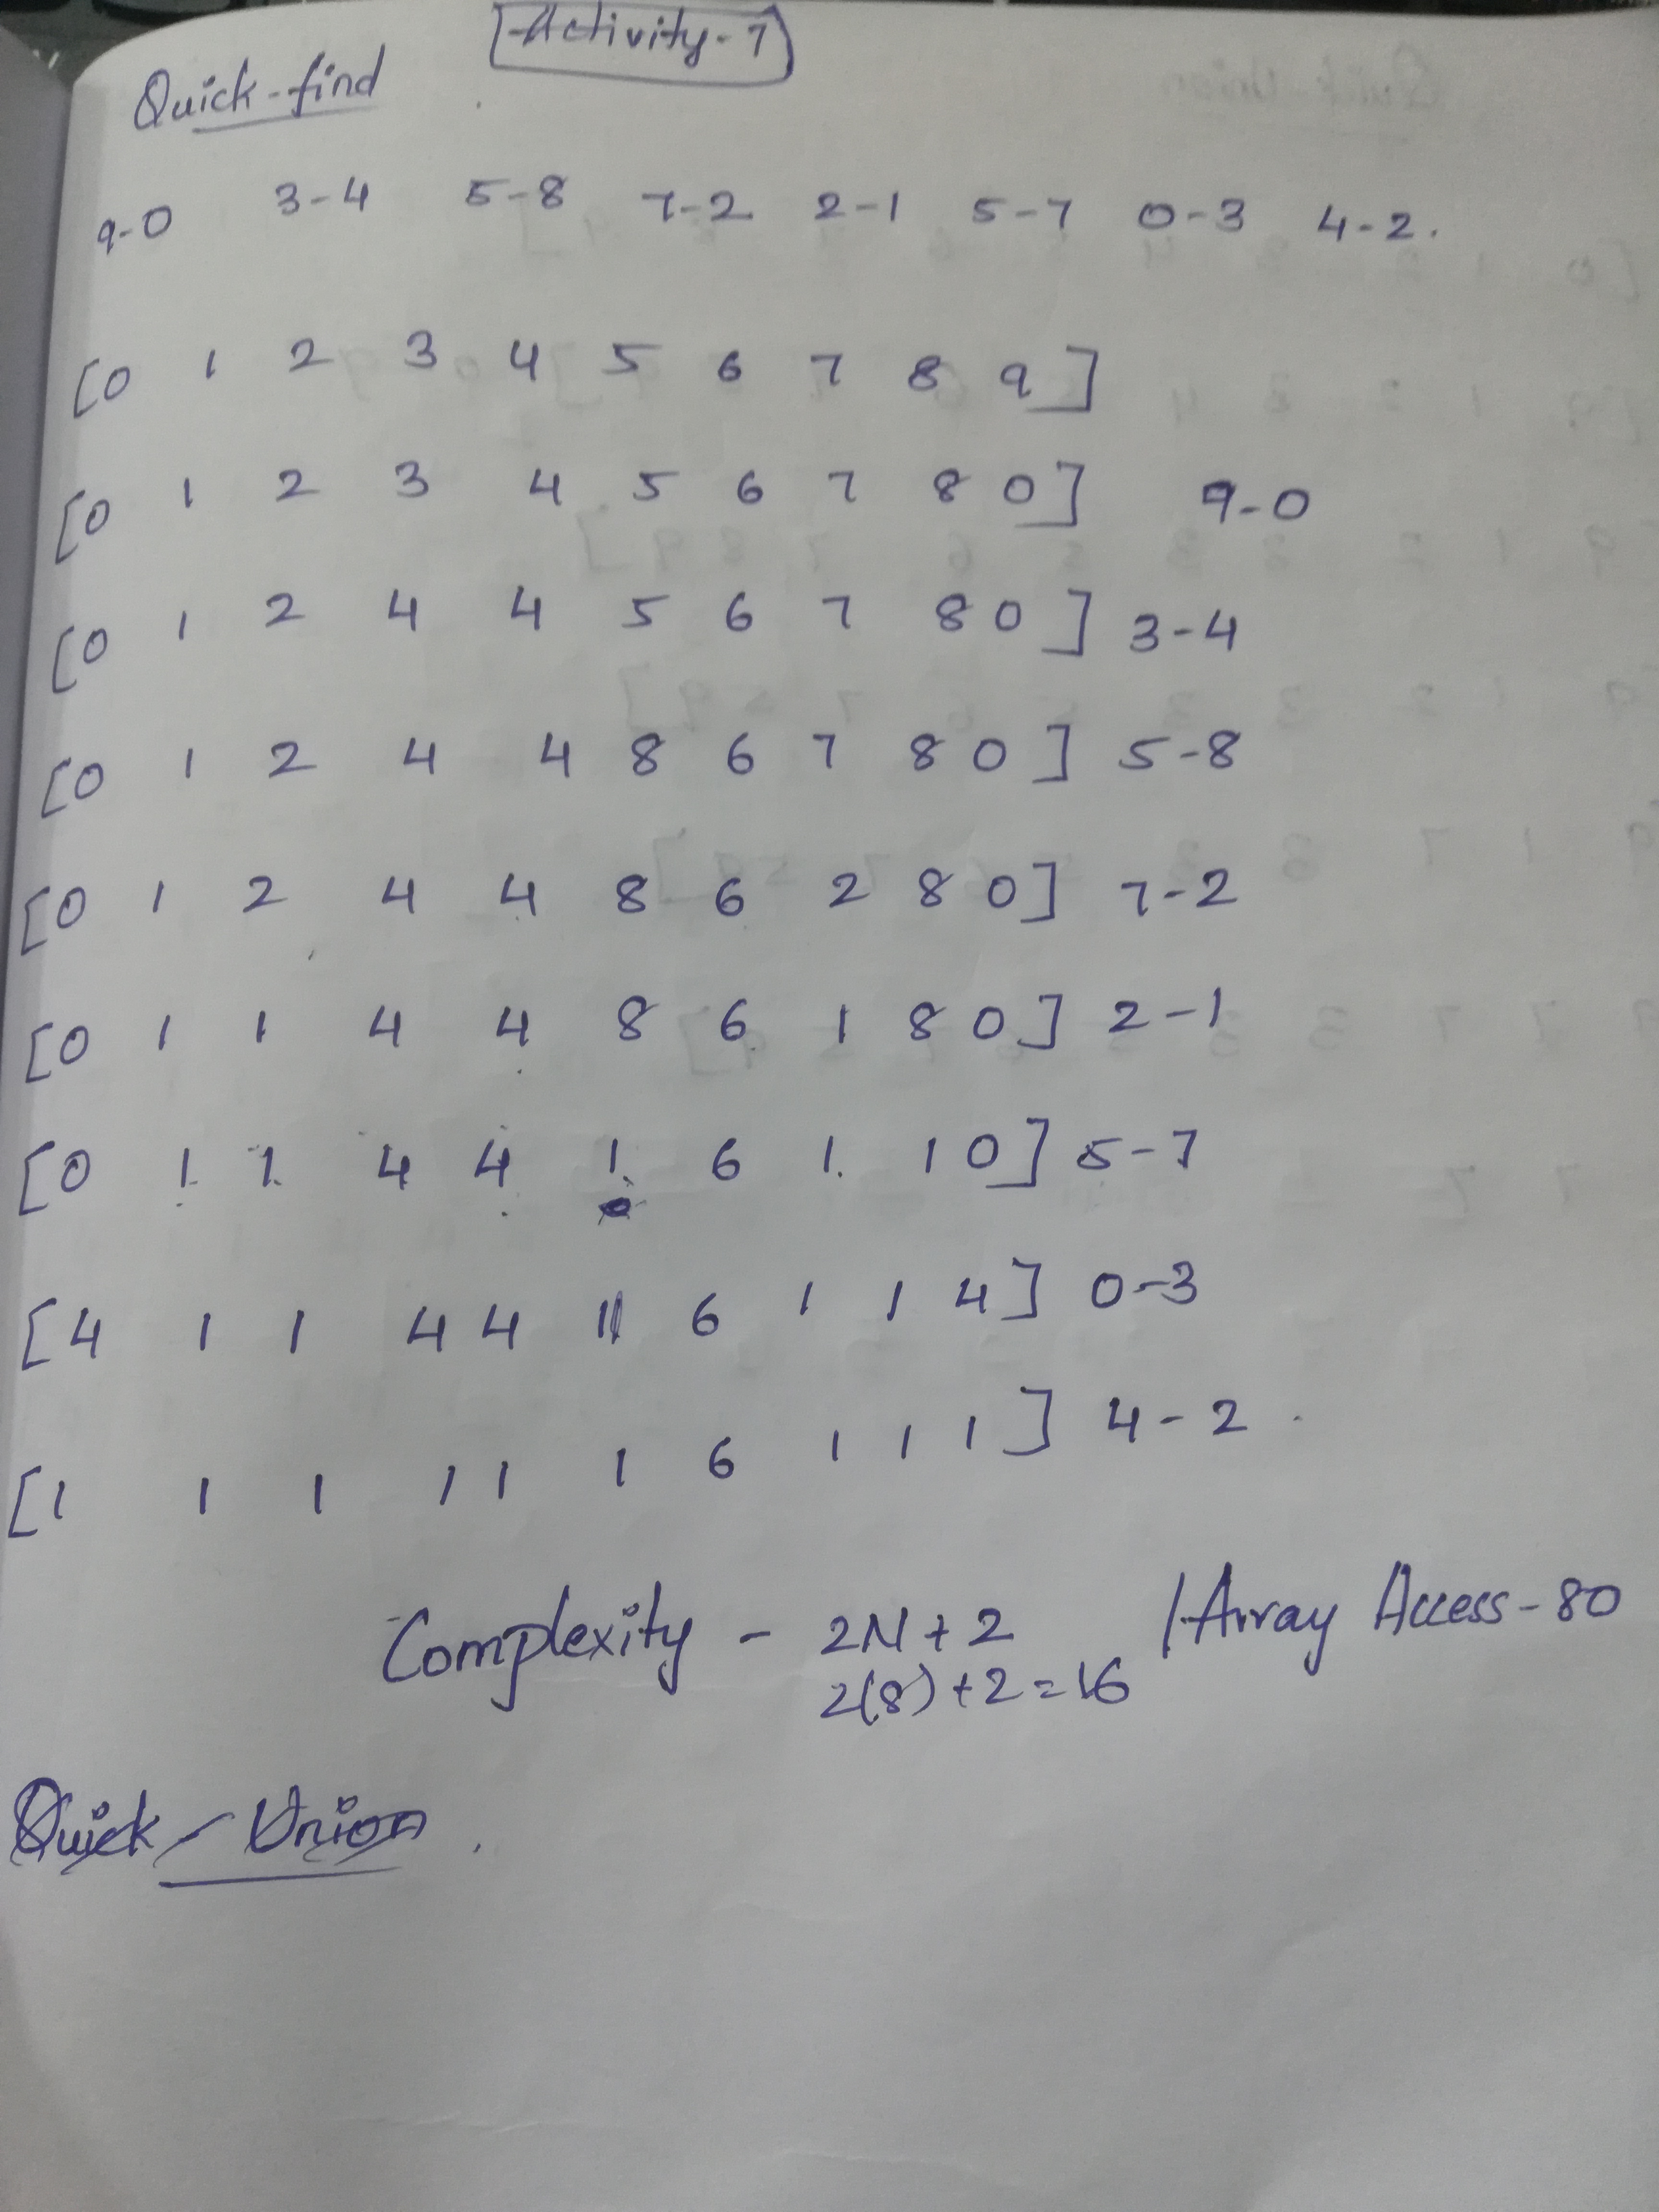 Activity-7
Quick-find
9-0 3-4 5-8 7-2 2-1 5-7 0-3 4-2.
[0 1 2 3 4 5 6 7 8 9]
[0 1 2 3 4 5 6 7 8 0] 9-0
[0 1 2 4 4 5 6 7 8 0] 3-4
[0 1 2 4 4 8 6 7 8 0] 5-8
[0 1 2 4 4 8 6 2 8 0] 7-2
[0 1 1 4 4 8 6 1 8 0] 2-1
[0 1 1 4 4 1 6 1 1 0] 5-7
[4 1 1 4 4 1 6 1 1 4] 0-3
[1 1 1 1 1 1 6 1 1 1] 4-2
Complexity - 2N+2 / Array Access-80
2(8)+2=16
Quick-Union.